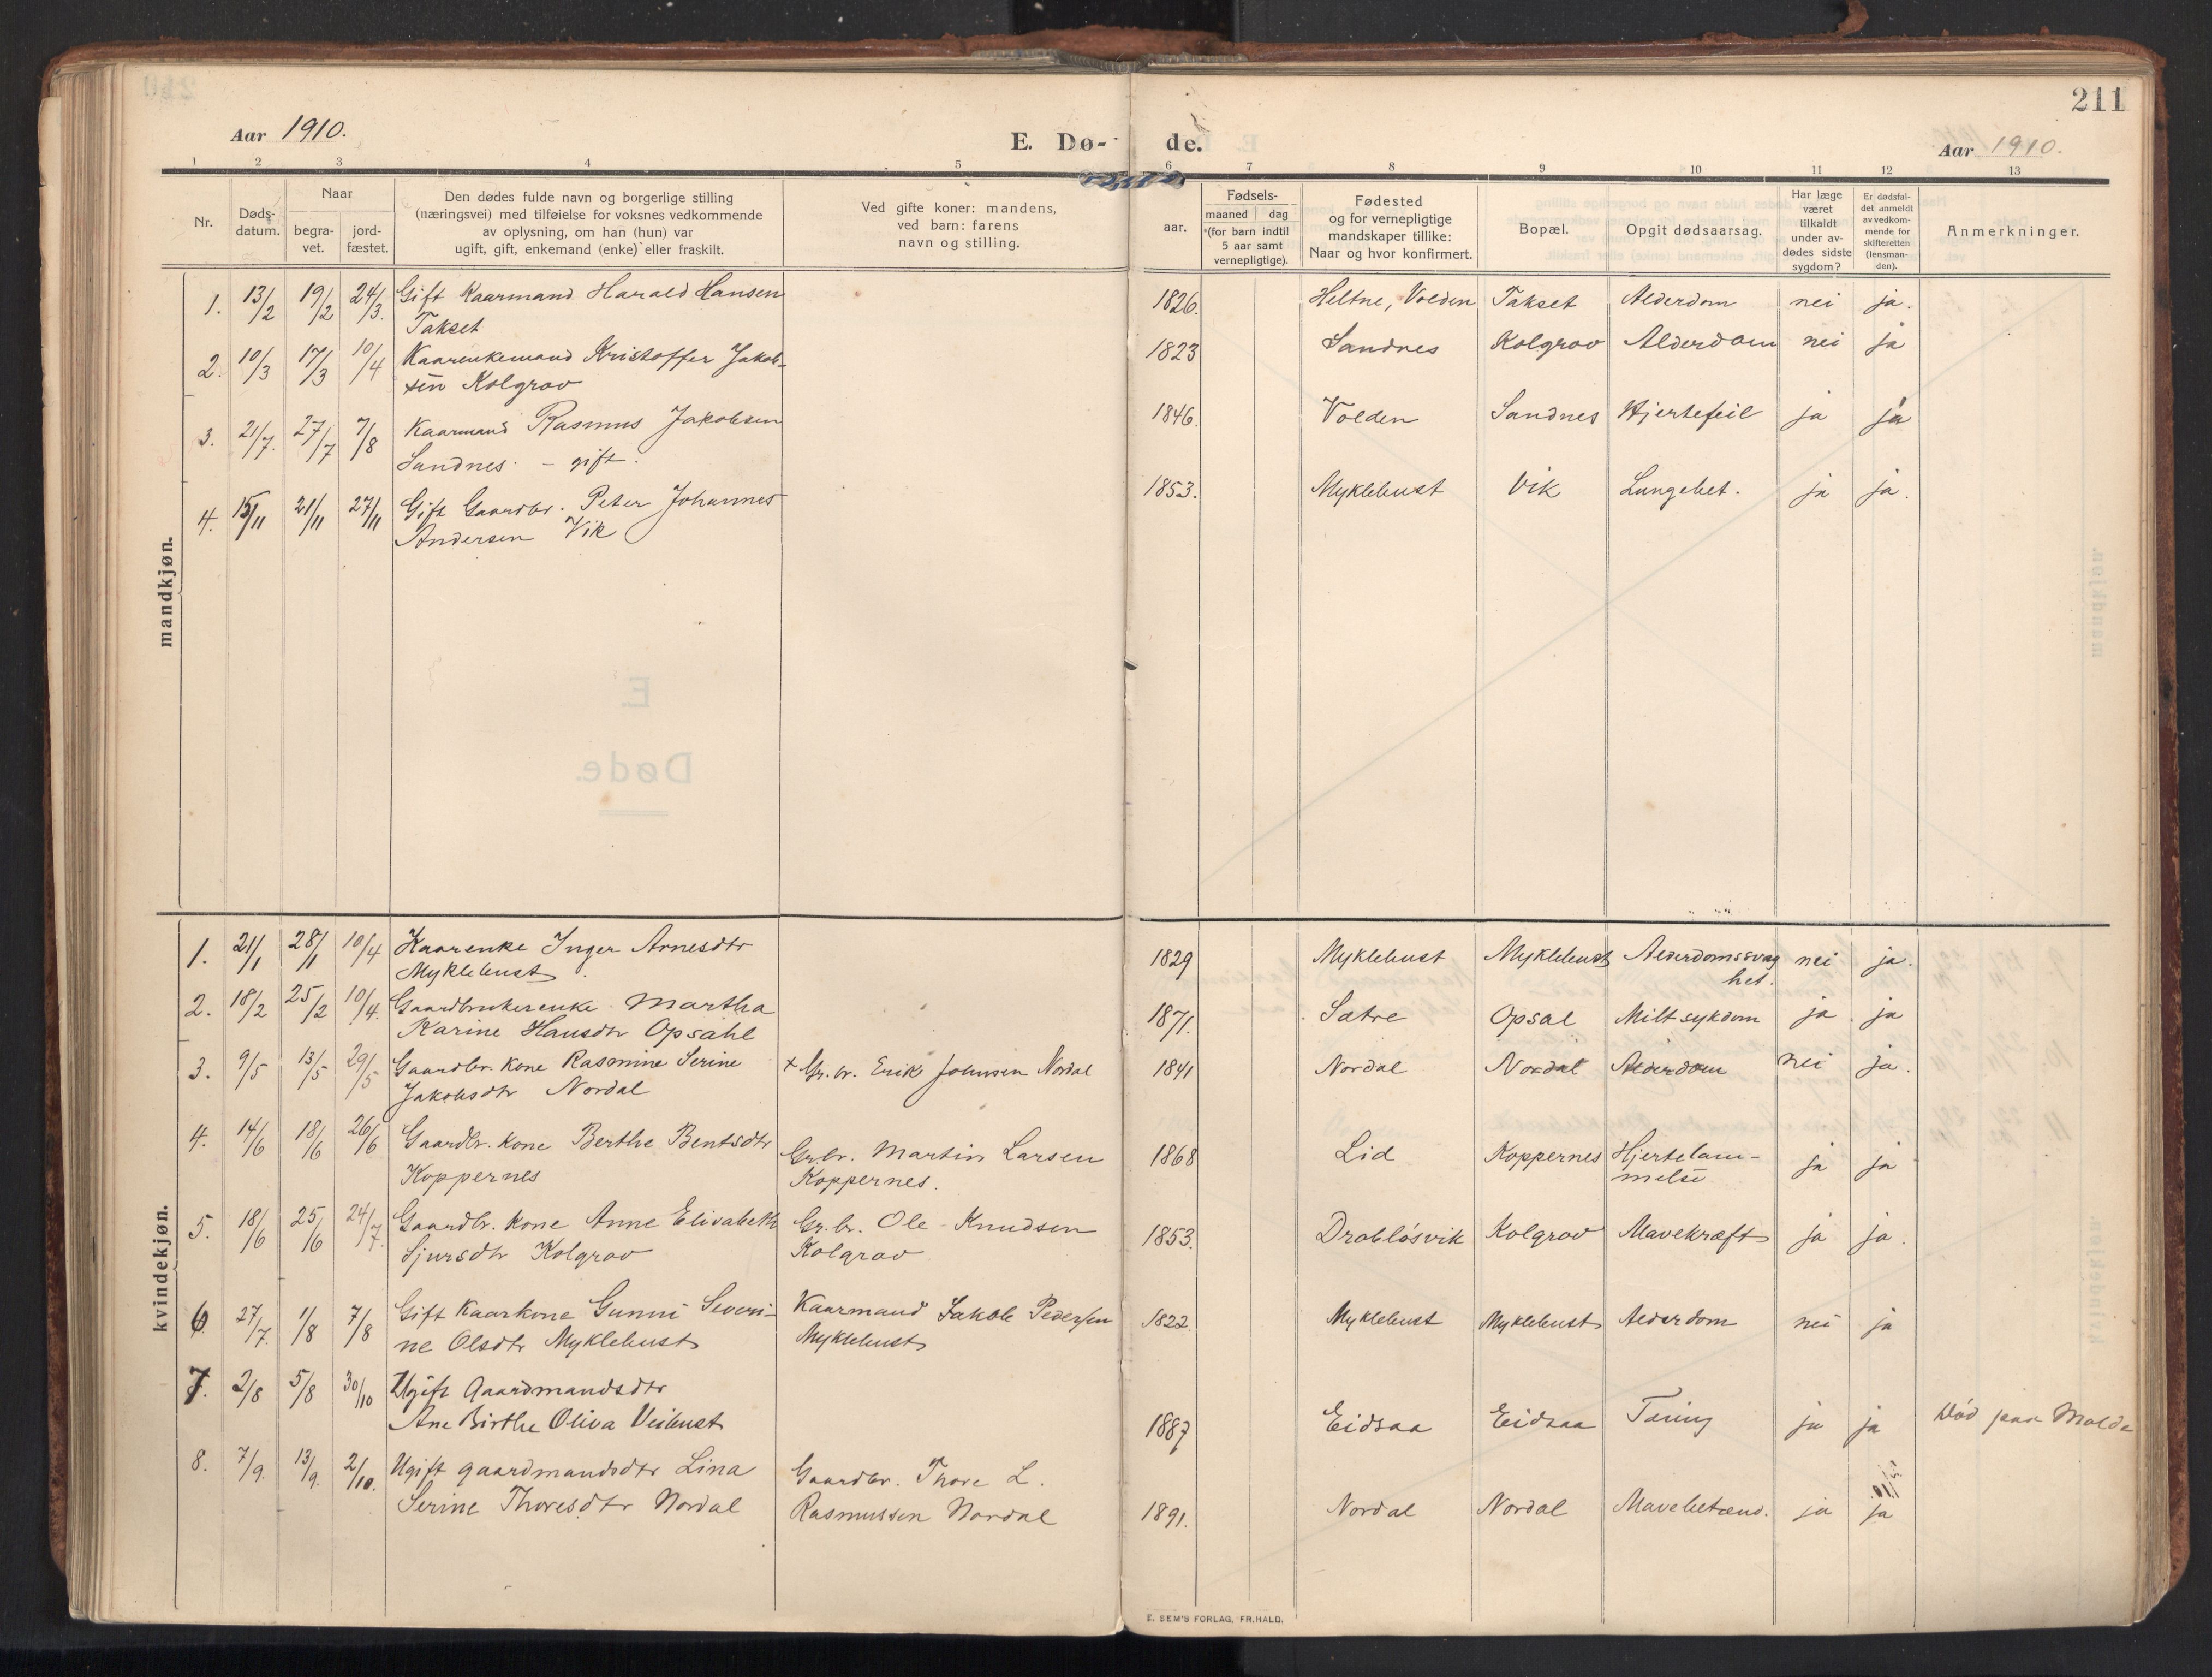 211
Aar 1910.
E. Dø- de.
Aar 1910.
1 2 3 4 5 6 7 8 9 10 11 12 13
Nr.
Døds-
datum.
Naar
begra-
vet.
jord-
fæstet.
Den dødes fulde navn og borgerlige stilling
(næringsvei) med tilføielse for voksnes vedkommende
av oplysning, om han (hun) var
ugift, gift, enkemand (enke) eller fraskilt.
Ved gifte koner: mandens,
ved barn: farens
navn og stilling.
Fødsels-
aar.
maaned dag
*(for barn indtil
5 aar samt
vernepligtige).
Fødested
og for vernepligtige
mandskaper tillike:
Naar og hvor konfirmert.
Bopæl.
Opgit dødsaarsag.
Har læge
været
tilkaldt
under av-
dødes sidste
sygdom?
Er dødsfal-
det anmeldt
av vedkom-
mende for
skifteretten
(lensman-
den).
Anmerkninger.
mandkjøn.
1. 13/2 19/2 24/3. Gift Kaarmand Harald Hansen 1826. Heltne, Volden Takset Alderdom nei ja.
Takset
2. 10/3 17/3 10/4 Kaarenkemand Kristoffer Jakob- 1823 Sandnes Kolgrov Alderdom nei ja
sen Kolgrov
3. 21/7. 27/7 7/8 Kaarmand Rasmus Jakobsen 1846. Volden Sandnes Hjertefeil ja ja
Sandnes. - gift.
4. 15/11 21/11 27/11 Gift Gaardbr. Peter Johannes 1853. Myklebust Vik Lungebet. ja ja.
Andersen Vik
E.
Døde.
kvindekjøn.
1. 21/1 28/1 10/4 Kaarenke Inger Arnesdtr 1829 Myklebust Myklebust Alderdomssvag nei ja.
Myklebust. het.
2. 18/2 25/2 10/4. Gaardbrukerenke Martha 1871. Sætre Opsal Miltsykdom ja ja
Karine Hansdtr Opsahl
3. 9/5 13/5 29/5 Gaardbr. kone Rasmine Serine + Gr. br. Erik Johnsen Nordal 1841 Nordal Nordal Alderdom nei ja.
Jakobsdtr Nordal
4. 14/6 18/6 26/6 Gaardbr. kone Berthe Bentsdtr Gr. br. Martin Larsen 1868 Lid Koppernes Hjertelam- ja ja
Koppernes Koppernes. melse
5. 18/6 25/6 24/7. Gaardbr. kone Anne Elisabeth Gr. br. Ole Knudsen 1853. Drabløsvik Kolgrov Mavekræft ja ja.
Sjursdtr Kolgrov Kolgrov
6 27/7. 1/8 7/8 Gift Kaarkone Gunni Severi- Kaarmand Jakob Pedersen 1822. Myklebust Myklebust Alderdom nei ja
ne Olsdtr Myklebust Myklebust
7. 2/8 5/8 30/10 Ugift Gaardmandsdtr
Ane Birthe Oliva Veibust 1887 Eidsaa Eidsaa Tæring ja ja Død paa Molde
8. 7/9. 13/9. 2/10. Ugift gaardmandsdtr Lina Gaardbr. Thore L.
Serine Thoresdtr Nordal Rasmussen Nordal 1891. Nordal Nordal Mavebetænd. ja ja
E. SEM'S FORLAG, FR.HALD.